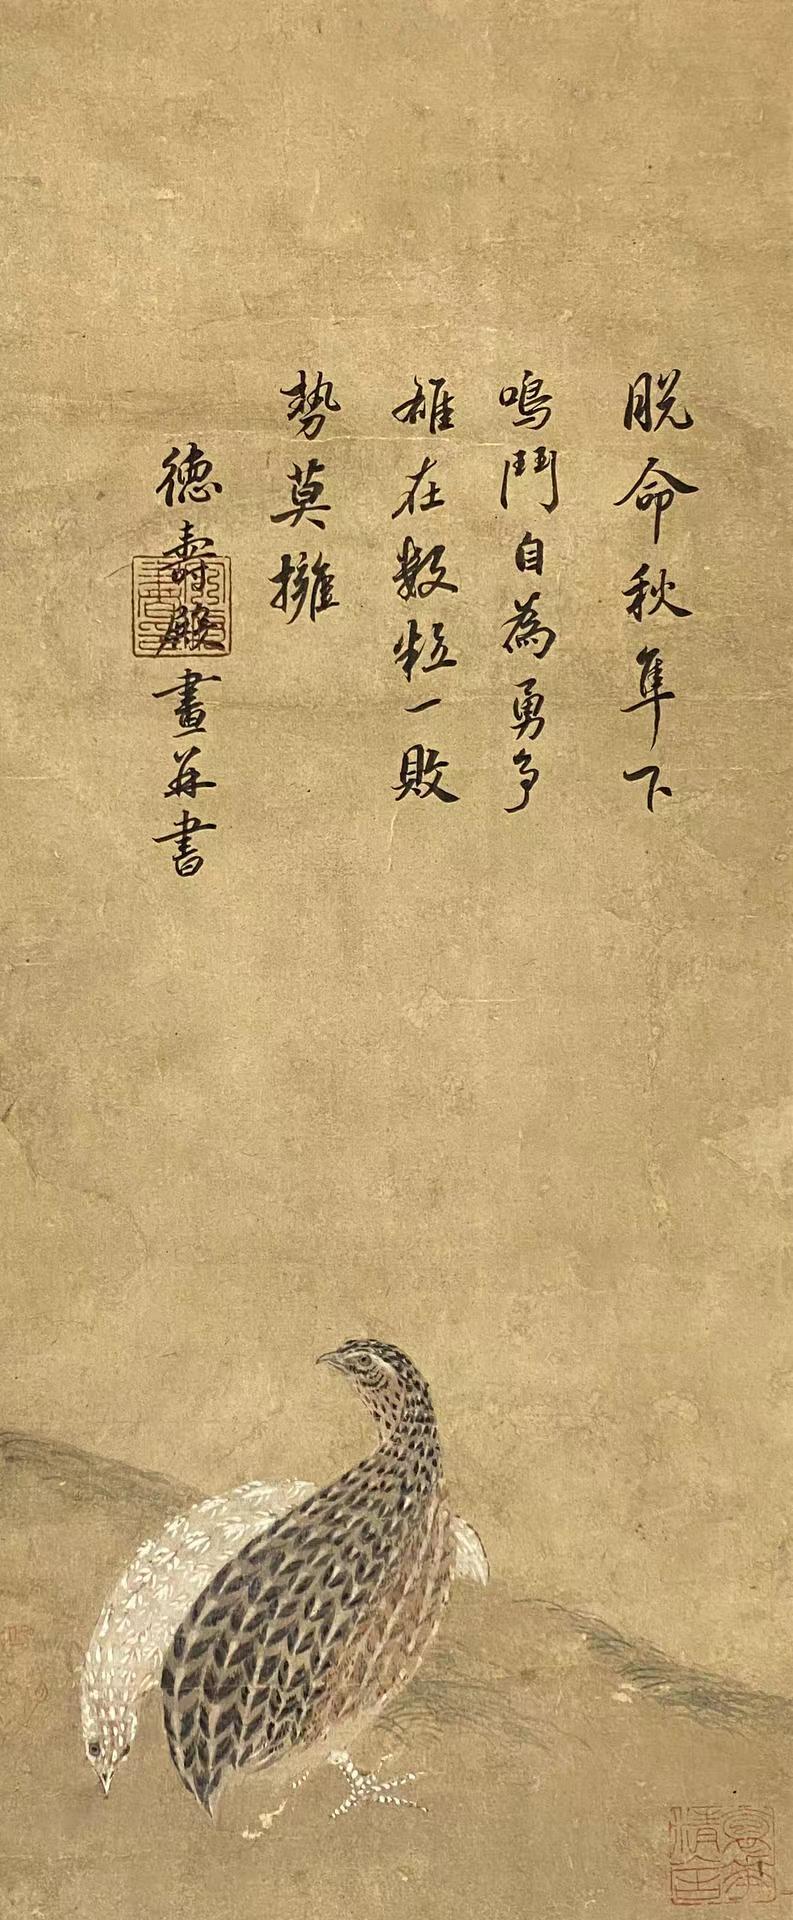 脱命秋隼下
鳴鬥自為勇爭
雄在數粒一敗
勢莫擁
德壽殿畫并書